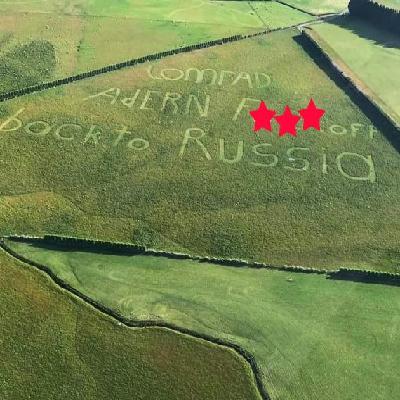 COMRAD
AdERN F OFF
back to RUSSia